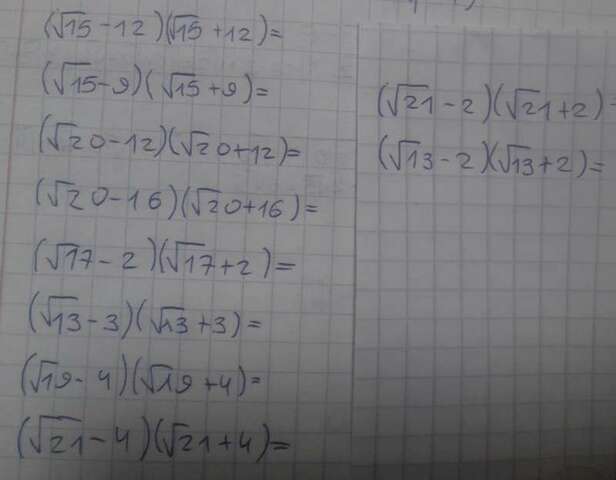 (√15-12)(√15+12)=
(√15-9)(√15+9)=
(√20-12)(√20+12)=
(√20-16)(√20+16)=
(√17-2)(√17+2)=
(√13-3)(√13+3)=
(√19-4)(√19+4)=
(√21-4)(√21+4)=
(√21-2)(√21+2)=
(√13-2)(√13+2)=